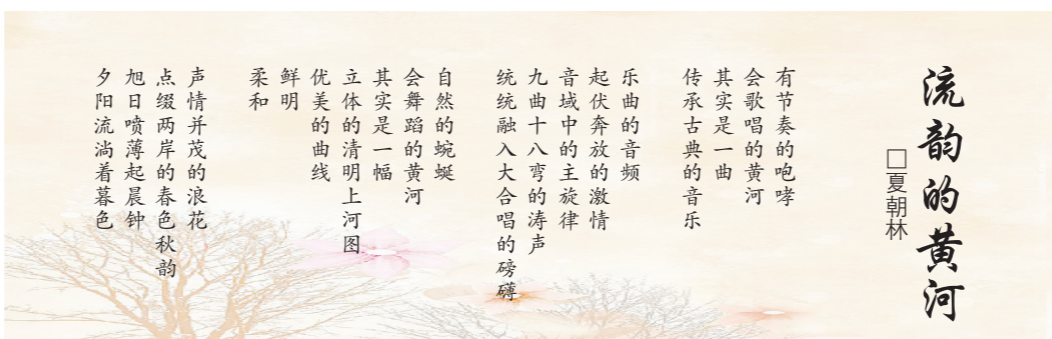 流韵的黄河
□夏朝林
有节奏的咆哮
会歌唱的黄河
其实是一曲
传承古典的音乐
乐曲的音频
起伏奔放的激情
音域中的主旋律
九曲十八弯的涛声
统统融入大合唱的磅礴
自然的蜿蜒
会舞蹈的黄河
其实是一幅
立体的清明上河图
优美的曲线
鲜明
柔和
声情并茂的浪花
点缀两岸的春色秋韵
旭日喷薄起晨钟
夕阳流淌着暮色